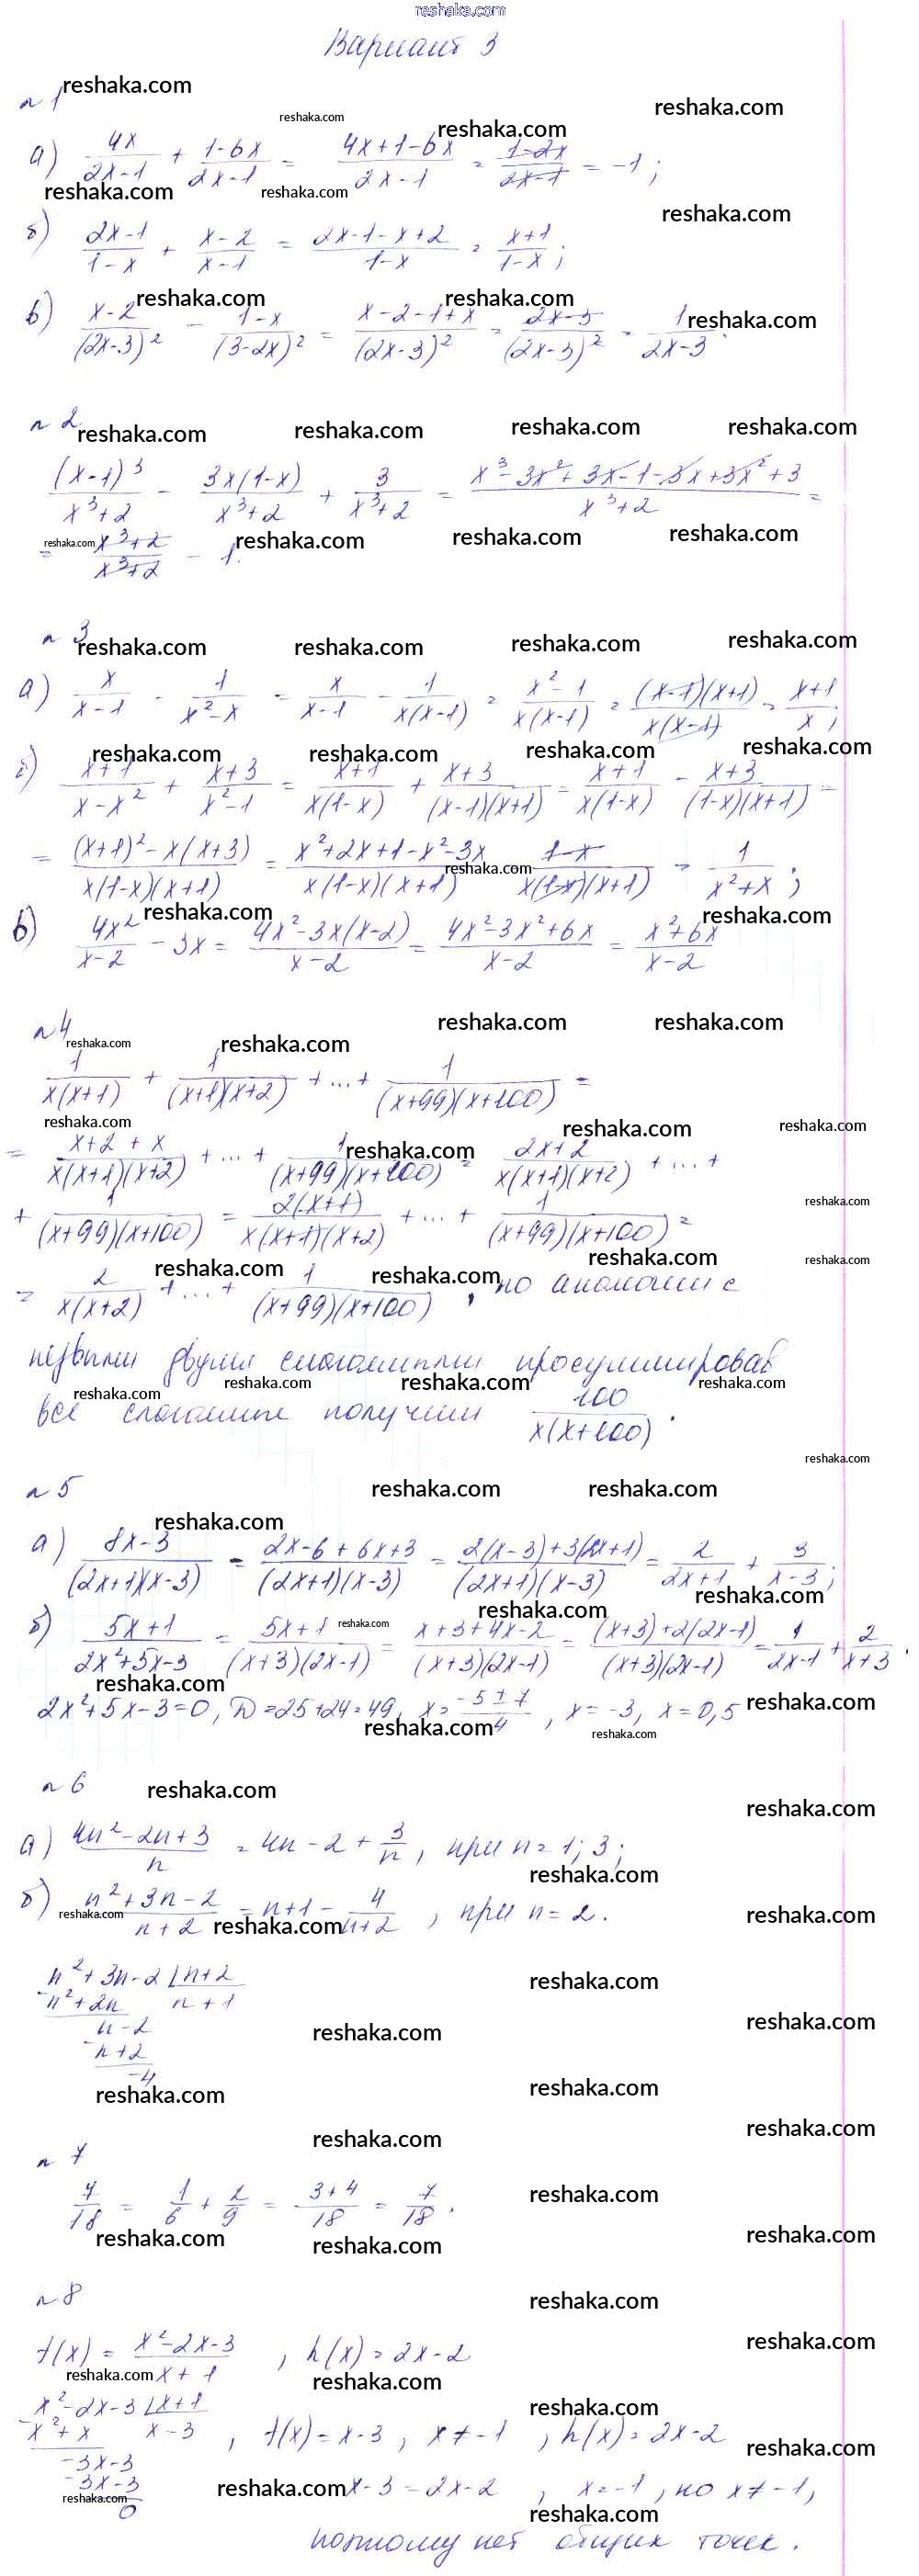 reshaka.com
Вариант 3
№1
а) 4x/(2x-1) + (1-6x)/(2x-1) = (4x+1-6x)/(2x-1) = (1-2x)/(2x-1) = -1;
б) (2x-1)/(1-x) + (x-2)/(x-1) = (2x-1-x+2)/(1-x) = (x+1)/(1-x);
в) (x-2)/(2x-3)² - (1-x)/(3-2x)² = (x-2-1+x)/(2x-3)² = (2x-3)/(2x-3)² = 1/(2x-3).
№2
(x-1)³/(x³+2) - 3x(1-x)/(x³+2) + 3/(x³+2) = (x³-3x²+3x-1-3x+3x²+3)/(x³+2) =
= (x³+2)/(x³+2) - 1.
№3
а) x/(x-1) - 1/(x²-x) = x/(x-1) - 1/(x(x-1)) = (x²-1)/(x(x-1)) = (x-1)(x+1)/(x(x-1)) = (x+1)/x;
б) (x+1)/(x-x²) + (x+3)/(x²-1) = (x+1)/(x(1-x)) + (x+3)/((x-1)(x+1)) = (x+1)/(x(1-x)) - (x+3)/((1-x)(x+1)) =
= ((x+1)²-x(x+3))/(x(1-x)(x+1)) = (x²+2x+1-x²-3x)/(x(1-x)(x+1)) (1-x)/(x(1-x)(x+1)) = 1/(x²+x);
в) 4x²/(x-2) - 3x = (4x²-3x(x-2))/(x-2) = (4x²-3x²+6x)/(x-2) = (x²+6x)/(x-2)
№4
1/(x(x+1)) + 1/((x+1)(x+2)) + ... + 1/((x+99)(x+100)) =
= (x+2+x)/(x(x+1)(x+2)) + ... + 1/((x+99)(x+100)) = (2x+2)/(x(x+1)(x+2)) + ... +
+ 1/((x+99)(x+100)) = 2(x+1)/(x(x+1)(x+2)) + ... + 1/((x+99)(x+100)) =
= 2/(x(x+2)) + ... + 1/((x+99)(x+100)), по аналогии с
первыми двумя слагаемыми просуммировав
все слагаемые получим 100/(x(x+100)).
№5
а) (8x-3)/((2x+1)(x-3)) = (2x-6+6x+3)/((2x+1)(x-3)) = (2(x-3)+3(2x+1))/((2x+1)(x-3)) = 2/(2x+1) + 3/(x-3);
б) (5x+1)/(2x²+5x-3) = (5x+1)/((x+3)(2x-1)) = (x+3+4x-2)/((x+3)(2x-1)) = ((x+3)+2(2x-1))/((x+3)(2x-1)) = 1/(2x-1) + 2/(x+3).
2x²+5x-3=0, D=25+24=49, x=(-5±7)/4, x=-3, x=0,5
№6
а) (4n²-2n+3)/n = 4n-2+3/n, при n=1; 3;
б) (n²+3n-2)/(n+2) = n+1-4/(n+2), при n=2.
n²+3n-2 | n+2
-n²+2n n+1
n-2
-n+2
-4
№7
7/18 = 1/6 + 2/9 = (3+4)/18 = 7/18.
№8
f(x) = (x²-2x-3)/(x+1), h(x)=2x-2
x²-2x-3 | x+1
-x²+x x-3, f(x)=x-3, x≠-1, h(x)=2x-2
-3x-3
-3x-3
0 x-3=2x-2, x=-1, но x≠-1,
поэтому нет общих точек.